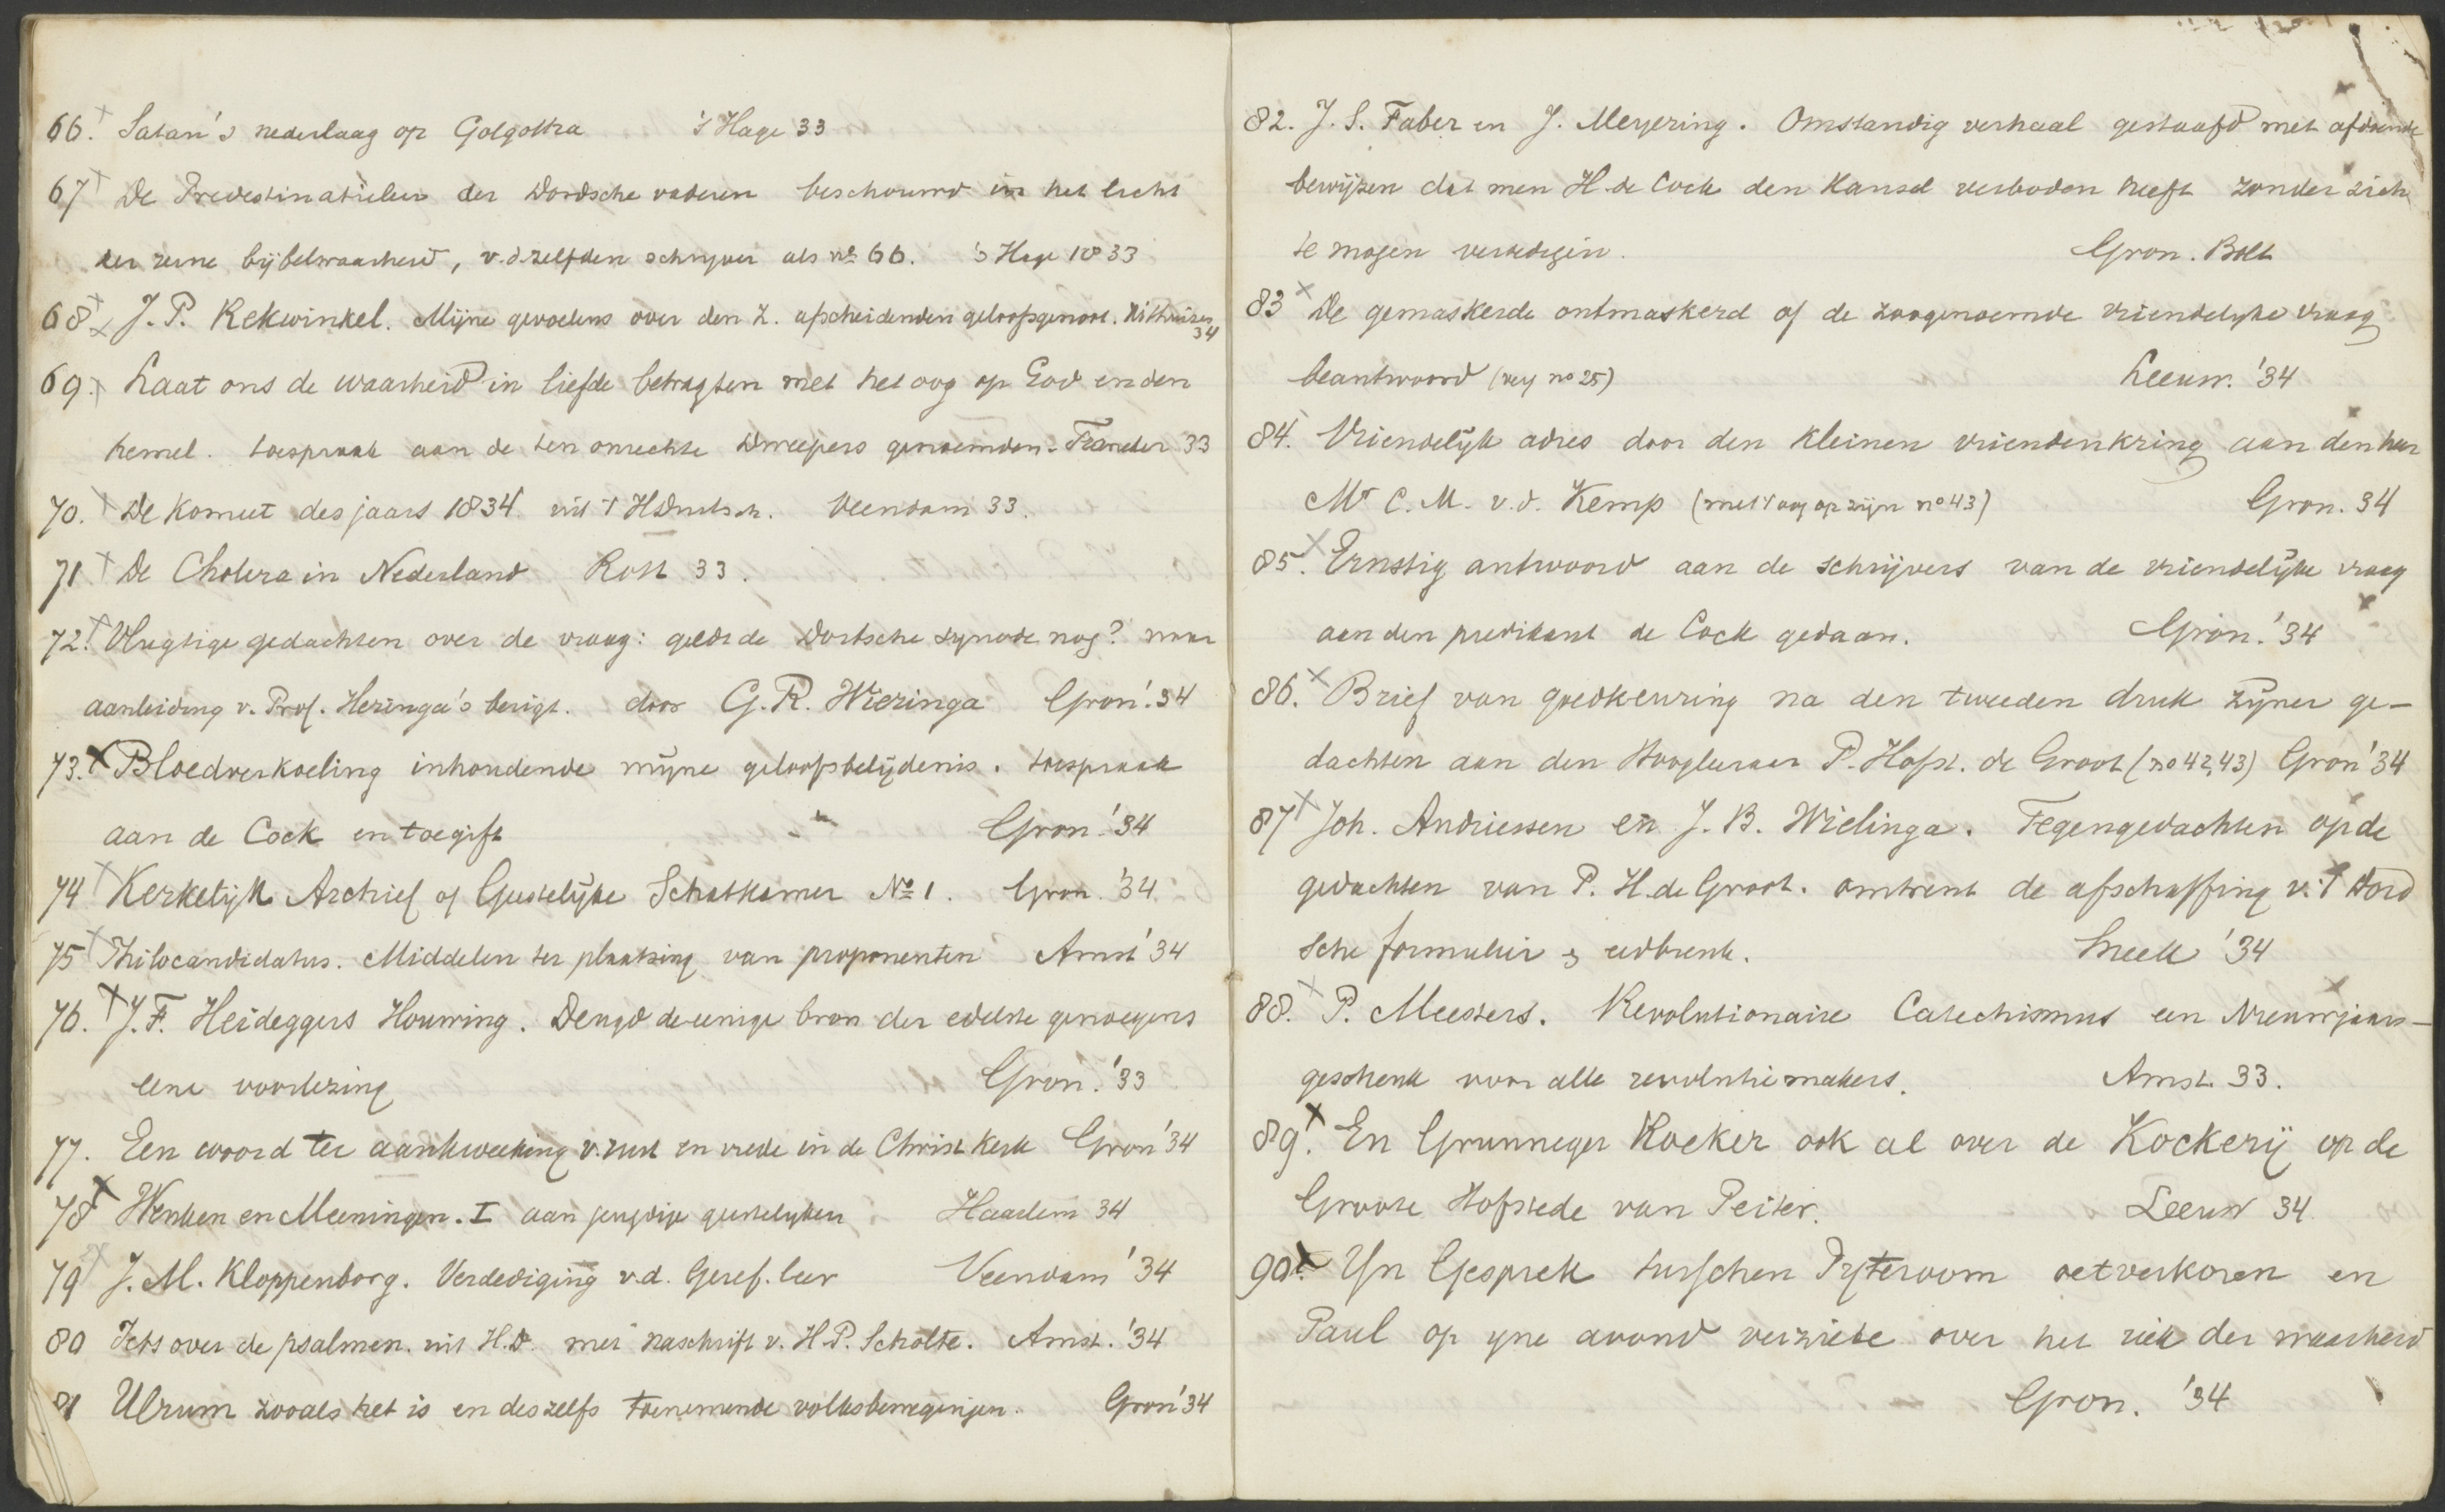 66. Satan's nederlaag op Golgotha 's Hage 33
67 De Predestinatieleer der Dordsche vaderen beschouwd in het licht
der reine bijbelwaarheid, v. dzelfden schrijver als no 66. 's Hage 1833
68 J. P. Rekwinkel. Mijne gevoelens over den Z. afscheidenden geloofsgenoot. Uithuizen
34
69. Laat ons de waarheid in liefde betragten met het oog op God en den
hemel. toespraak aan de ten onrechte Dweepers genoemden. Franeker 33
70. De Komeet des jaars 1834 uit 't HDuitsch. Veendam 33.
71 De Cholera in Nederland Rott 33.
72. Vlugtige gedachten over de vraag: geldt de Dortsche synode nog? naar
aanleiding v. Prof. Heringa's berigt. door G. R. Wieringa Gron. '34
73. Bloedverkoeling inhoudende mijne geloofsbelijdenis. toespraak
aan de Cock en toegift Gron. '34
74 Kerkelijk Archief of Geestelijke Schatkamer No 1. Gron. '34
75 Philocandidatus. Middelen ter plaatsing van proponenten Amst '34
76. J. F. Heideggers Houwing. Deugd de eenige bron der edelste genoegens
eene voorlezing Gron. '33
77. Een woord ter aankweeking v. rust en vrede in de Christ kerk Gron '34
78 Wenken en Meeningen. I aan jeugdige geestelijken Haarlem 34
79 J. M. Kloppenborg. Verdediging v.d. Geref. leer Veendam '34
80 Iets over de psalmen. uit H.D. met naschrift v. H. P. Scholte. Amst. '34
81 Ulrum zooals het is en deszelfs toenemende volksbewegingen. Gron '34
82. J. S. Faber en J. Meyering. Omstandig verhaal gestaafd met afdoende
bewijzen dat men H de Cock den Kansel verboden heeft zonder zich
te mogen verdedigen. Gron. Bolt
83 De gemaskerde ontmaskerd of de zoogenoemde vriendelyke vraag
beantwoord (no 25) Leeuw. '34
84. Vriendelijk adres door den kleinen vriendenkring aan den heer
Mr C. M. v. d. Kemp (met 't oog op zijn no 43) Gron. 34
85. Ernstig antwoord aan de schrijvers van de vriendelijke vraag
aan den predikant de Cock gedaan. Gron. '34
86. Brief van goedkeuring na den tweeden druk zijner ge-
dachten aan den Hoogleeraar P. Hofst. de Groot (no 42, 43) Gron '34
87 Joh. Andriessen en J. B. Wielinga. Tegengedachten op de
gedachten van P. H. de Groot. omtrent de afschaffing v. 't Dord
sche formulier & eedbreuk. Sneek '34
88. P. Meesters. Revolutionaire Catechismus een Nieuwjaars-
geschenk voor alle revolutiemakers. Amst. 33.
89. En Grunneger Koeker ook al over de Kockerij op de
Groote Hofstede van Peiter. Leeuw 34.
90. Yn Gesprek tusschen Pyteroom oetverkoren en
Paul op yne avond verziete over het riek der waarheid
Gron. '34